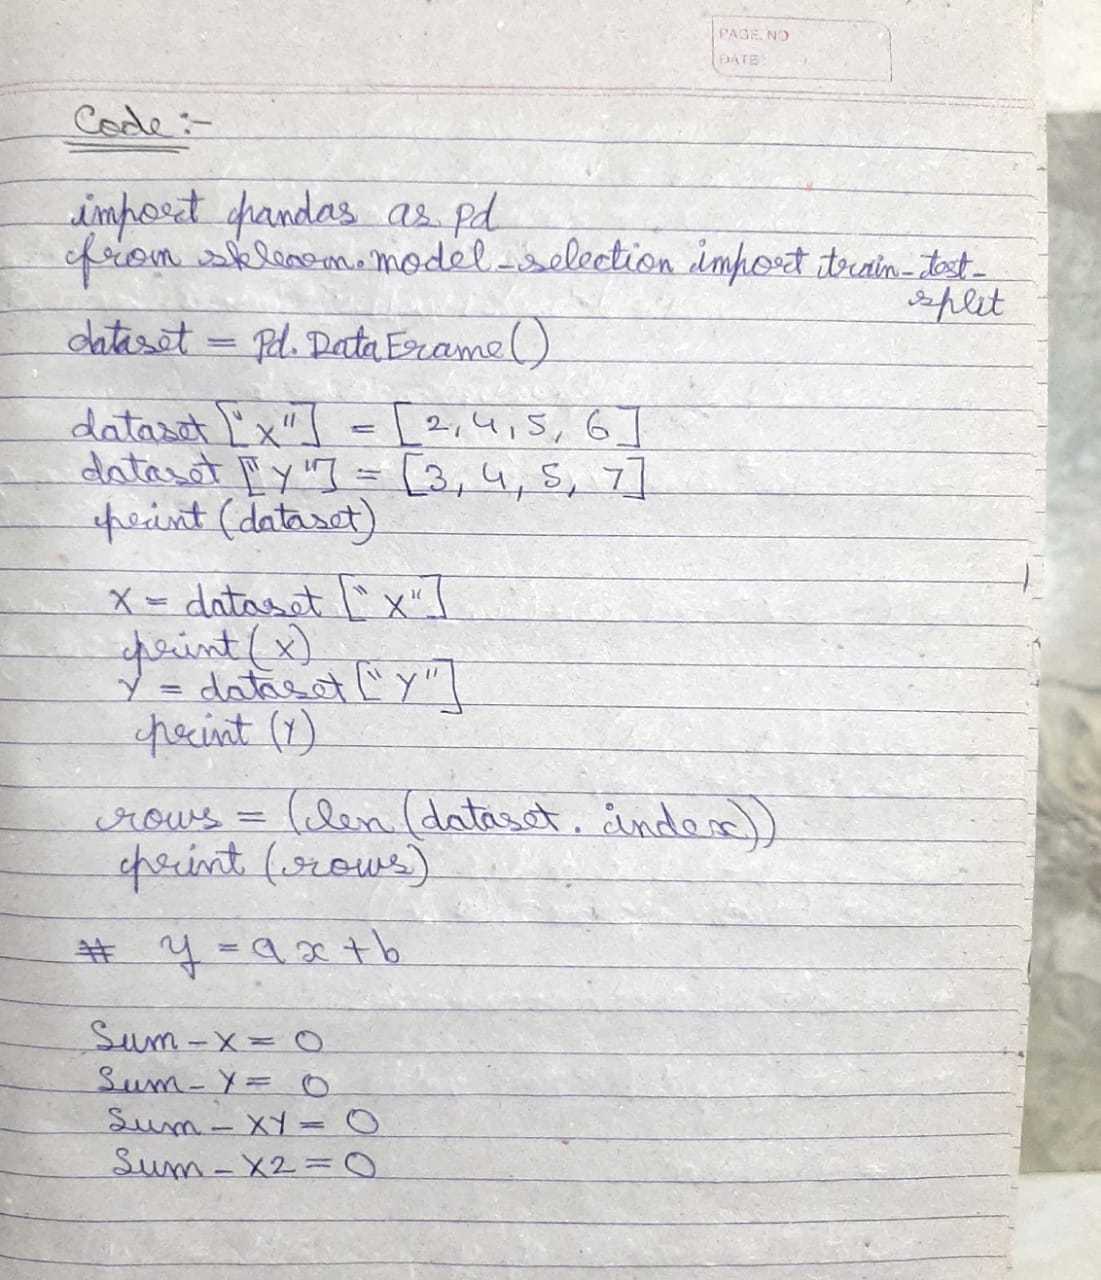 PAGE NO
DATE:
Code :-
import pandas as pd
from sklearn.model_selection import train_test_
split
dataset = Pd.DataFrame()
dataset ["X"] = [2, 4, 5, 6]
dataset ["Y"] = [3, 4, 5, 7]
print (dataset)
X = dataset ["X"]
print (X)
Y = dataset ["Y"]
print (Y)
rows = (len (dataset . index))
print (rows)
# y = ax + b
Sum_X = 0
Sum_Y = 0
Sum_XY = 0
Sum_X2 = 0